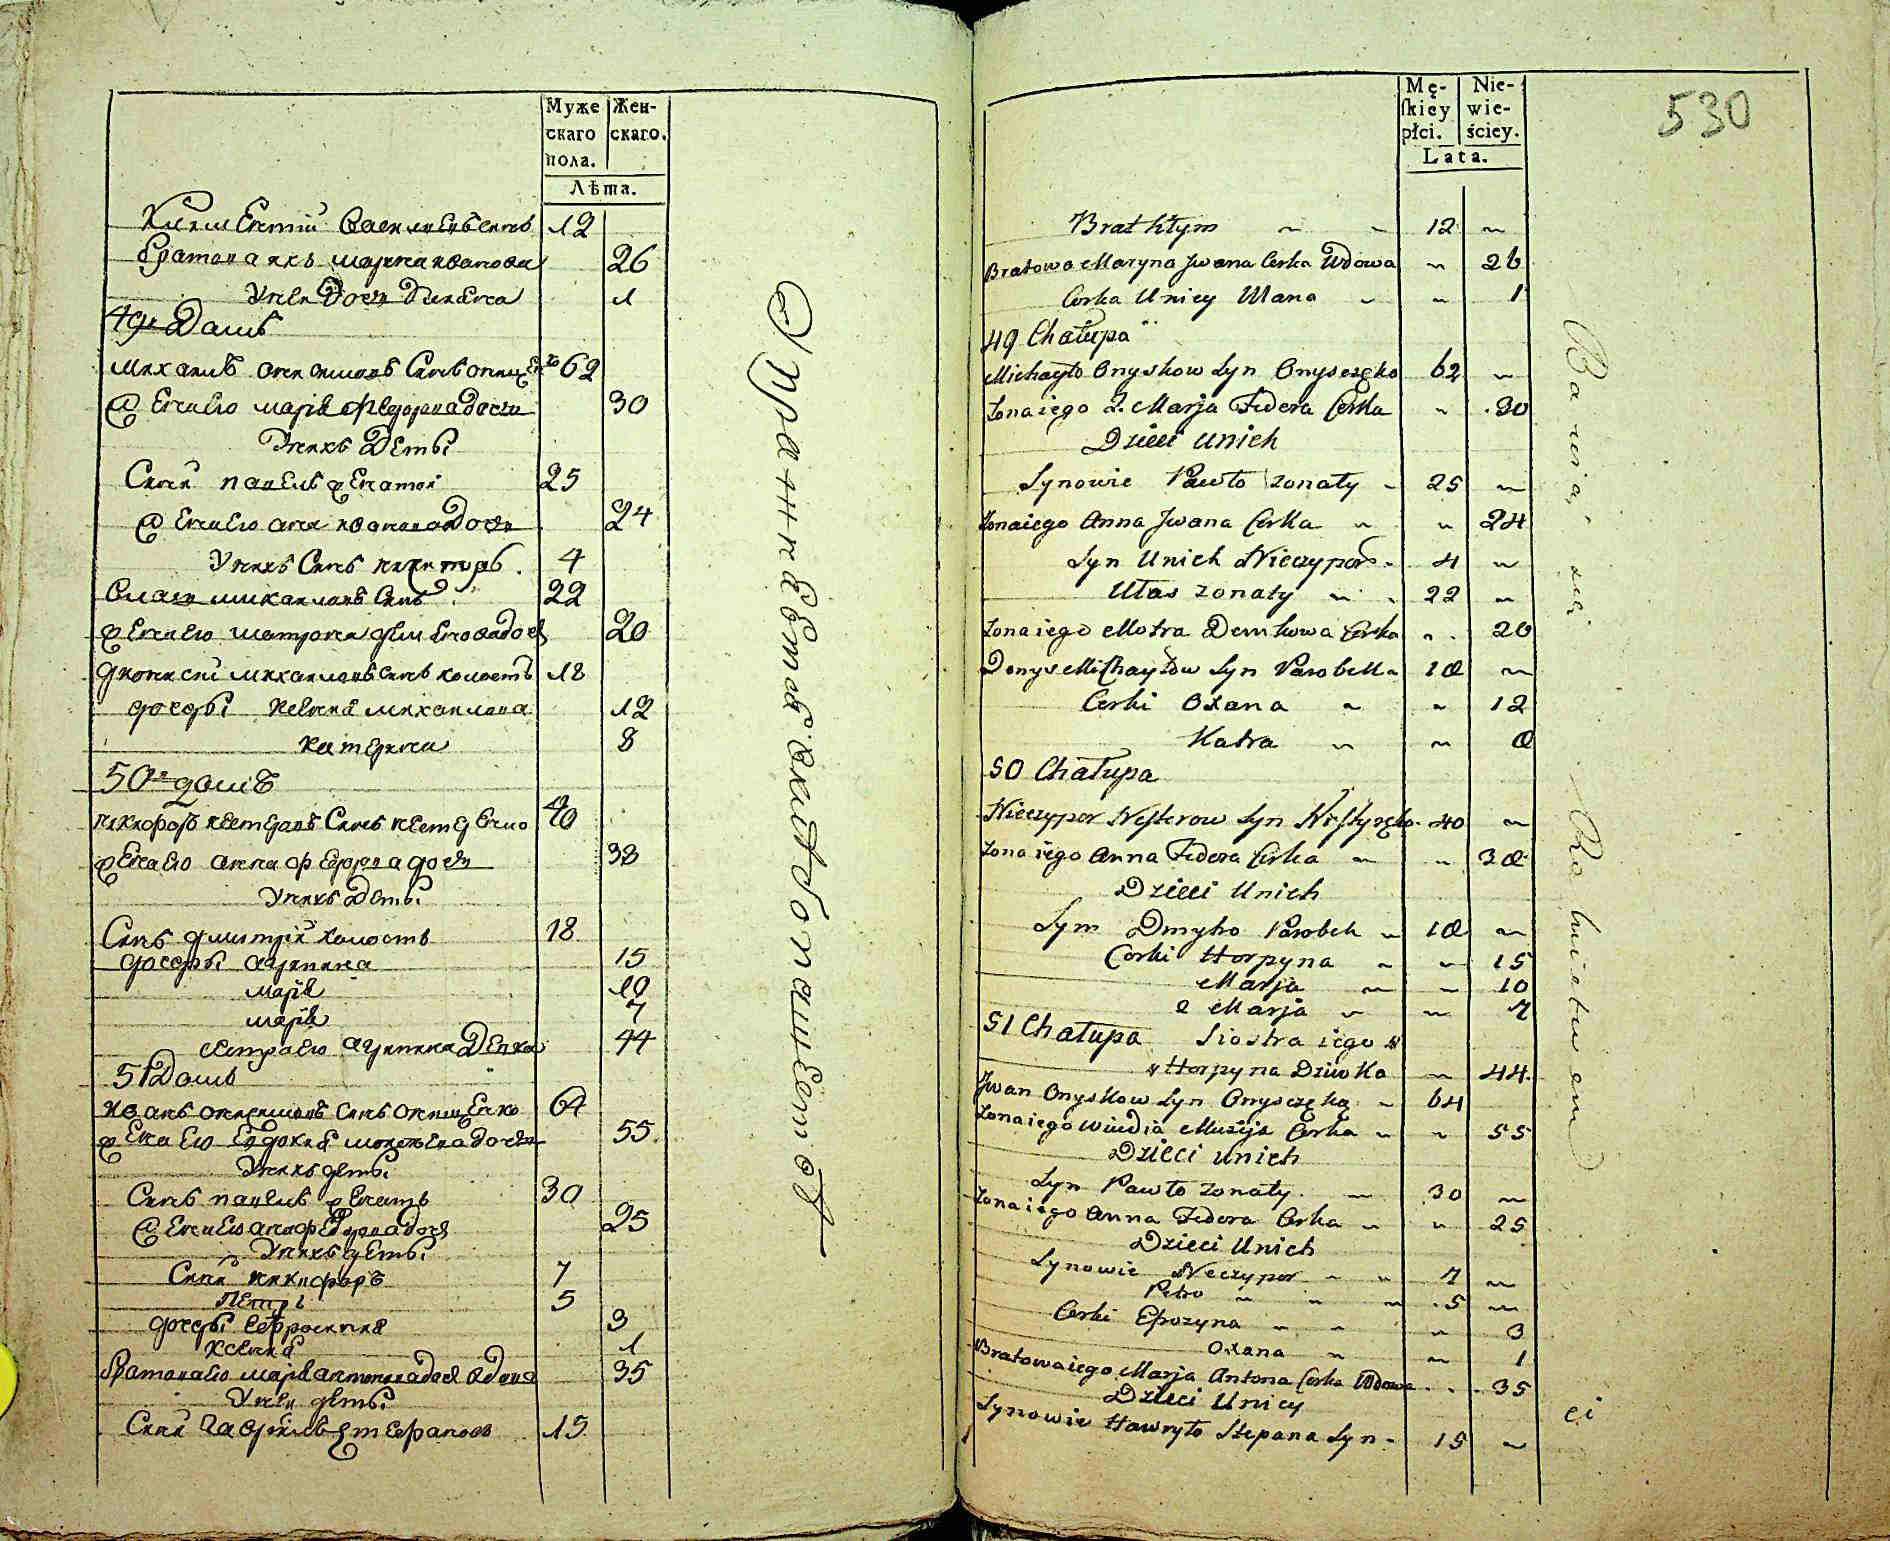 Муже
скаго
пола.
Жен-
скаго.
Лѣта.
12
26
Унея Дочь
1
49й Домъ
Михаилъ Анисимовъ Сынъ
62
Жена Его Марія Федорова дочь
30
Унихъ Дети
Сыни Павелъ женатой
25
Жена Его Анна Иванова Дочь
24
Унихъ Сынъ
4
Михаиловъ Сынъ
22
Жена Его Матрона
20
Дионисій Михаиловъ Сынъ холостъ
18
дочери Ксенія Михаилова
12
Катерина
8
50й домъ
Никифоръ Нестеровъ Сынъ
40
Жена Его Анна Федорова дочь
38
Унихъ Дети
Сынъ Дмитрій холостъ
18
дочери Агрипина
15
Марія
10
Марія
7
Сестра Его Агрипина Девка
44
51 Домъ
Иванъ Онисимовъ Сынъ
64
Жена Его Евдокия дочь
55
Унихъ дети
Сынъ Павелъ женатъ
30
Жена Его Анна Федорова дочь
25
Унихъ дети
Сыни Никифоръ
7
Петръ
5
дочери Ефросиния
3
Ксения
1
Марія Антонова дочь Вдова
35
Унея дети
Сыни Гавріилъ Стефановъ
15
530
Mę-
skiey
płci.
Nie-
wie-
ściey.
Lata.
Brat Kłym 12
Bratowa Maryna Jwana Corka Wdowa 26
Corka Unicy Ulana 1
49 Chałupa
Michayło Onyskow Syn Onyszczęko 62
Zona iego 2. Marja Fedora Corka 30
Dzieci unich
Synowie Pawło zonaty 25
Zona iego Anna Jwana Corka 24
Syn Unich Nieczypor 4
Ułas zonaty 22
Zona iego Motra Demkowa Corka 20
Denys Michayłow Syn Parobek 18
Corki Oxana 12
Katra 8
50 Chałupa
Nieczypor Nesterow Syn 40
Zona iego Anna Fedora Corka 38
Dzieci Unich
Syn Dmytro Parobek 18
Corki Horpyna 15
Marja 10
2 Marja 7
51 Chałupa Siostra iego
Horpyna Dziwka 44
Jwan Onyskow Syn Onyszczęko 64
Zona iego Corka 55
Dzieci unich
Syn Pawło zonaty 30
Zona iego Anna Fedora Corka 25
Dzieci Unich
Synowie Neczypor 7
Petro 5
Corki Eprozyna 3
Oxana 1
Bratowa iego Marja Antona Corka Wdowa 35
Dzieci Unicy
Synowie Hawryło Stepana Syn 15